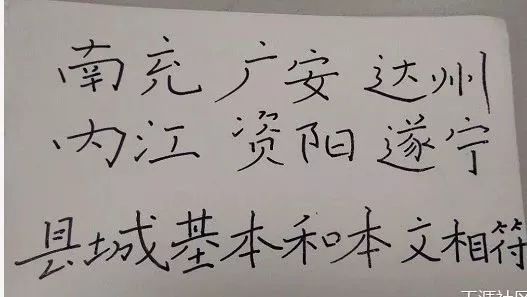 南充 广安 达州
内江 资阳 遂宁
县城基本和本文相符